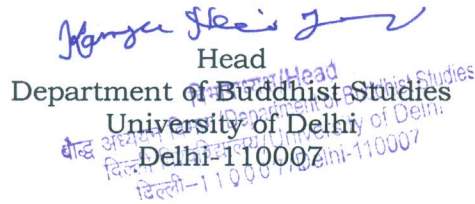 Head
Department of Buddhist Studies
University of Delhi
Delhi-110007
विभागाध्यक्ष/Head
बौद्ध अध्ययन विभाग/Department of Buddhist Studies
दिल्ली विश्वविद्यालय/University of Delhi
दिल्ली-110007/Delhi-110007